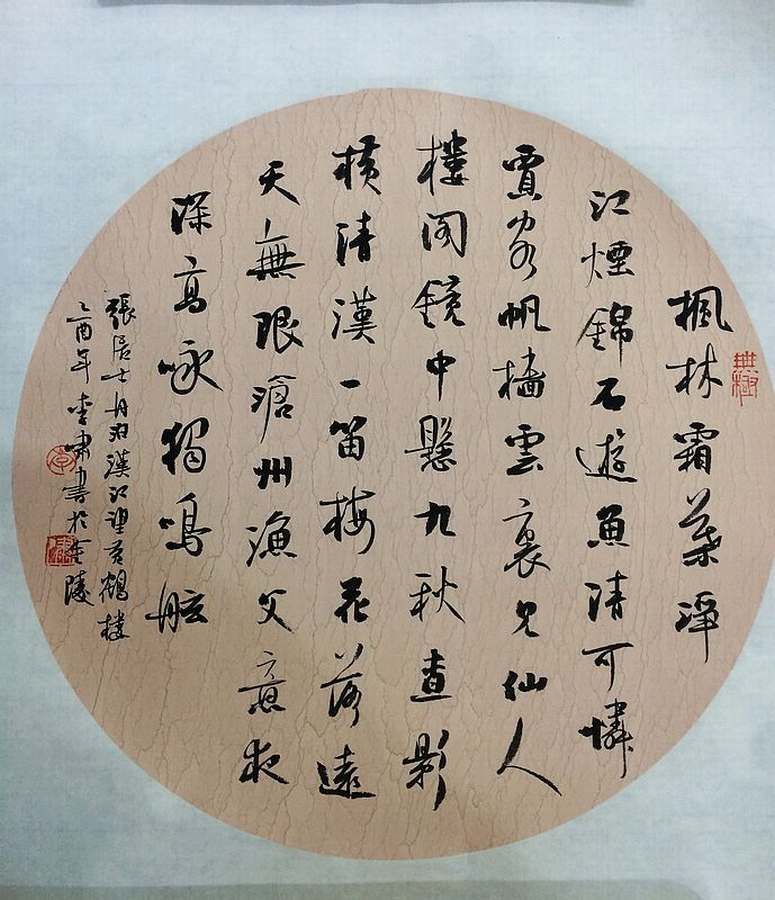 無極
楓林霜葉淨
江煙錦石遊魚清可憐
賈客帆檣雲裏見仙人
樓閣鏡中懸九秋查影
橫清漢一笛梅花落遠
天無限滄州漁父意夜
深高咏獨鳴舷
張居正舟泊漢江望黃鶴樓
乙酉年李書於金陵